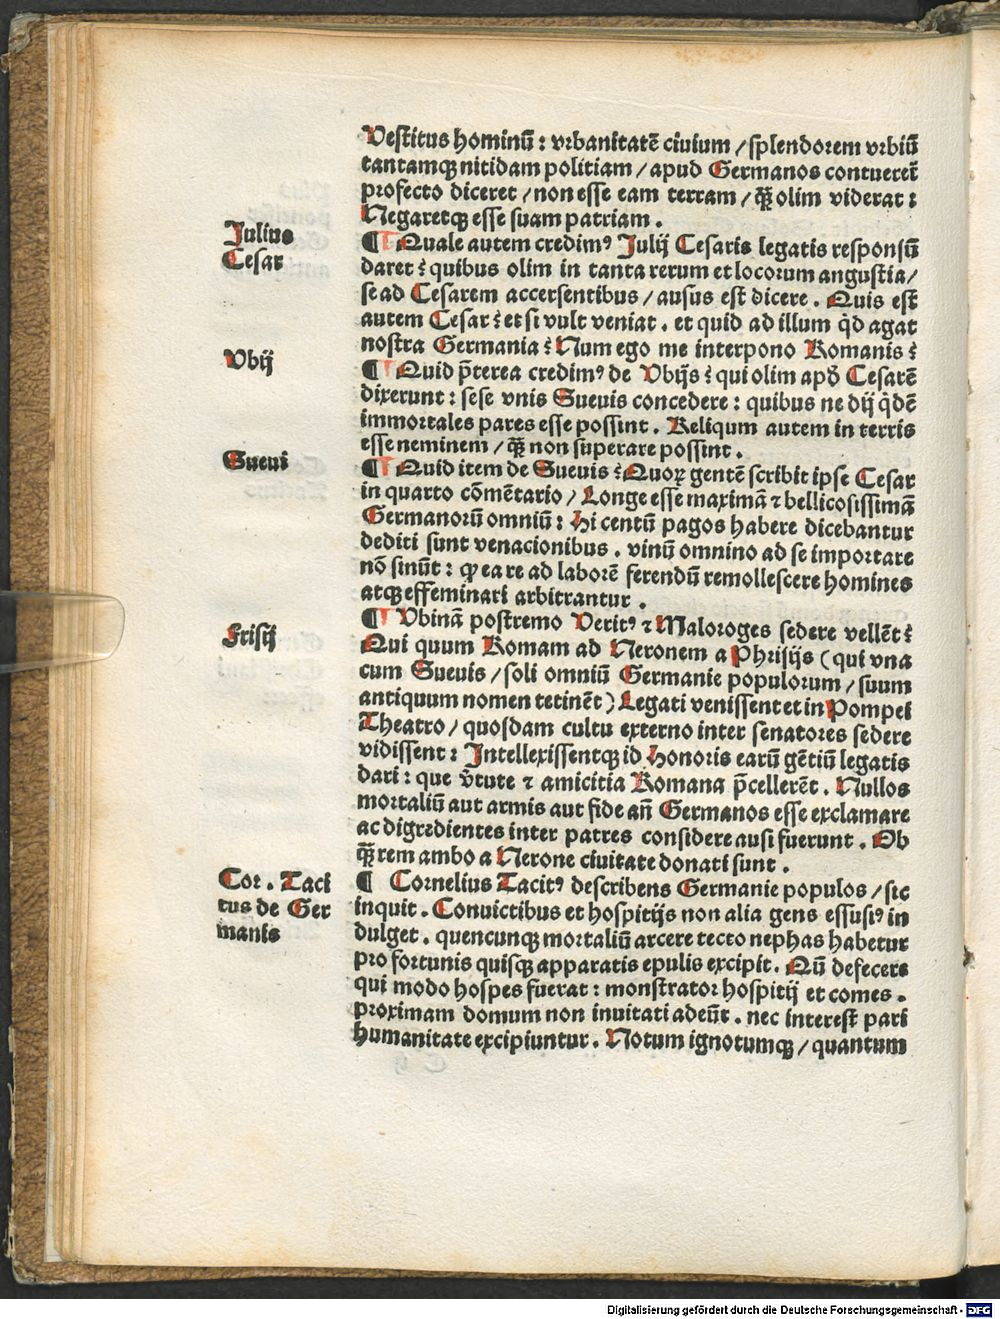 Vestitus hominū : vrbanitatē ciuium / splendorem vrbiū
tantamqꝫ nitidam politiam / apud Germanos contueret̄
profecto diceret / non esse eam terram / q̄ꝫ olim viderat :
Negaretqꝫ esse suam patriam .
Julius
Cesar
¶ Quale autem credimꝰ Julij Cesaris legatis responsū
daret : quibus olim in tanta rerum et locorum angustia /
se ad Cesarem accersentibus / ausus est dicere . Quis est
autem Cesar : et si vult veniat . et quid ad illum q̇d agat
nostra Germania : Num ego me interpono Romanis :
Vbij
¶ Quid p̄terea credimꝰ de Vbijs : qui olim apd̄ Cesarē
dixerunt : sese vnis Sueuis concedere : quibus ne dij q̇dē
immortales pares esse possint . Reliqum autem in terris
esse neminem / q̄ꝫ non superare possint .
Sueui
¶ Quid item de Sueuis : Quoꝝ gentē scribit ipse Cesar
in quarto cōmētario / Longe esse maximā ⁊ bellicosissimā
Germanorū omniū : Hi centū pagos habere dicebantur
dediti sunt venacionibus . vinū omnino ad se importare
nō sinūt : ꝙ ea re ad laborē ferendū remollescere homines
atqꝫ effeminari arbitrantur .
Frisij
¶ Vbinā postremo Veritꝰ ⁊ Maloroges sedere vellēt :
Qui quum Romam ad Neronem a Phrisijs ( qui vna
cum Sueuis / soli omniū Germanie populorum / suum
antiquum nomen tetinēt ) Legati venissent et in Pompei
Theatro / quosdam cultu externo inter senatores sedere
vidissent : Intellexissentqꝫ id Honoris earū gētiū legatis
dari : que v̄tute ⁊ amicitia Romana p̄cellerēt . Nullos
mortaliū aut armis aut fide an̄ Germanos esse exclamare
ac digredientes inter patres considere ausi fuerunt . Ob
q̄ꝫ rem ambo a Nerone ciuitate donati sunt .
Cor . Taci
tus de Ger
manis
¶ Cornelius Tacitꝰ describens Germanie populos / sic
inquit . Conuictibus et hospitijs non alia gens effusiꝰ in
dulget . quencunqꝫ mortaliū arcere tecto nephas habetur
pro fortunis quisqꝫ apparatis epulis excipit . Qū defecere
qui modo hospes fuerat : monstrator hospitij et comes .
proximam domum non inuitati adeūt . nec interest pari
humanitate excipiuntur . Notum ignotumqꝫ / quantum
Digitalisierung gefördert durch die Deutsche Forschungsgemeinschaft - DFG